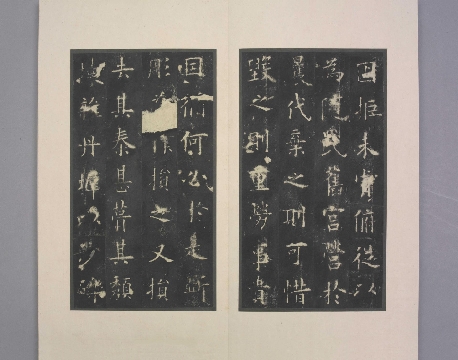 固拒未肯俯從以
為隨氏舊宮營於
曩代棄之則可惜
毀之則重勞事貴
因循何必於是斲
彫為樸損之又損
去其泰甚葺其頹
壞雜丹墀以沙礫